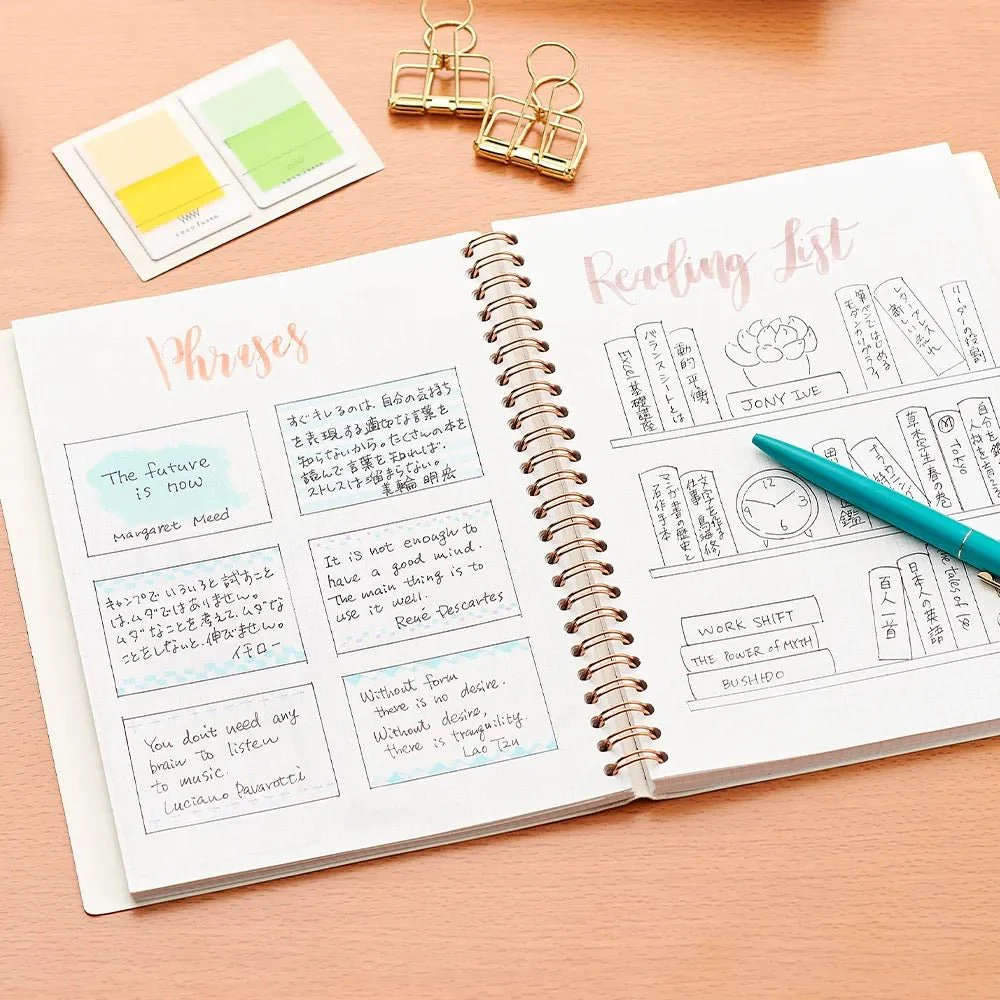 Phrases
The future
is now
Margaret Meed
すぐキレるのは、自分の気持ち
を表現する適切な言葉を
知らないから。たくさんの本を
読んで言葉を知れば、
ストレスは溜まらない。
美輪 明宏
キャンプでいろいろと試すこと
は、ムダではありません。
ムダなことを考えて、ムダな
ことをしないと、伸びません。
イチロー
It is not enough to
have a good mind.
The main thing is to
use it well.
René Descartes
You don't need any
brain to listen
to music.
Luciano Pavarotti
Without form
there is no desire.
Without desire,
there is tranquility.
Lao Tzu
Reading List
Excel 基礎講座
バランスシートとは
動的平衡
JONY IVE
筆ペンではじめる
モダンカリグラフィ
レタリングの
新しい流れ
リーダーの役割
マンガ 書の歴史と
名作手本
文字を作る
仕事 鳥海修
12
3
6
9
図鑑
草木学生春の巻
Tokyo
自分を鍛え
人材を育
WORK SHIFT
THE POWER of MYTH
BUSHIDO
百人一首
日本人の英語
The tales of